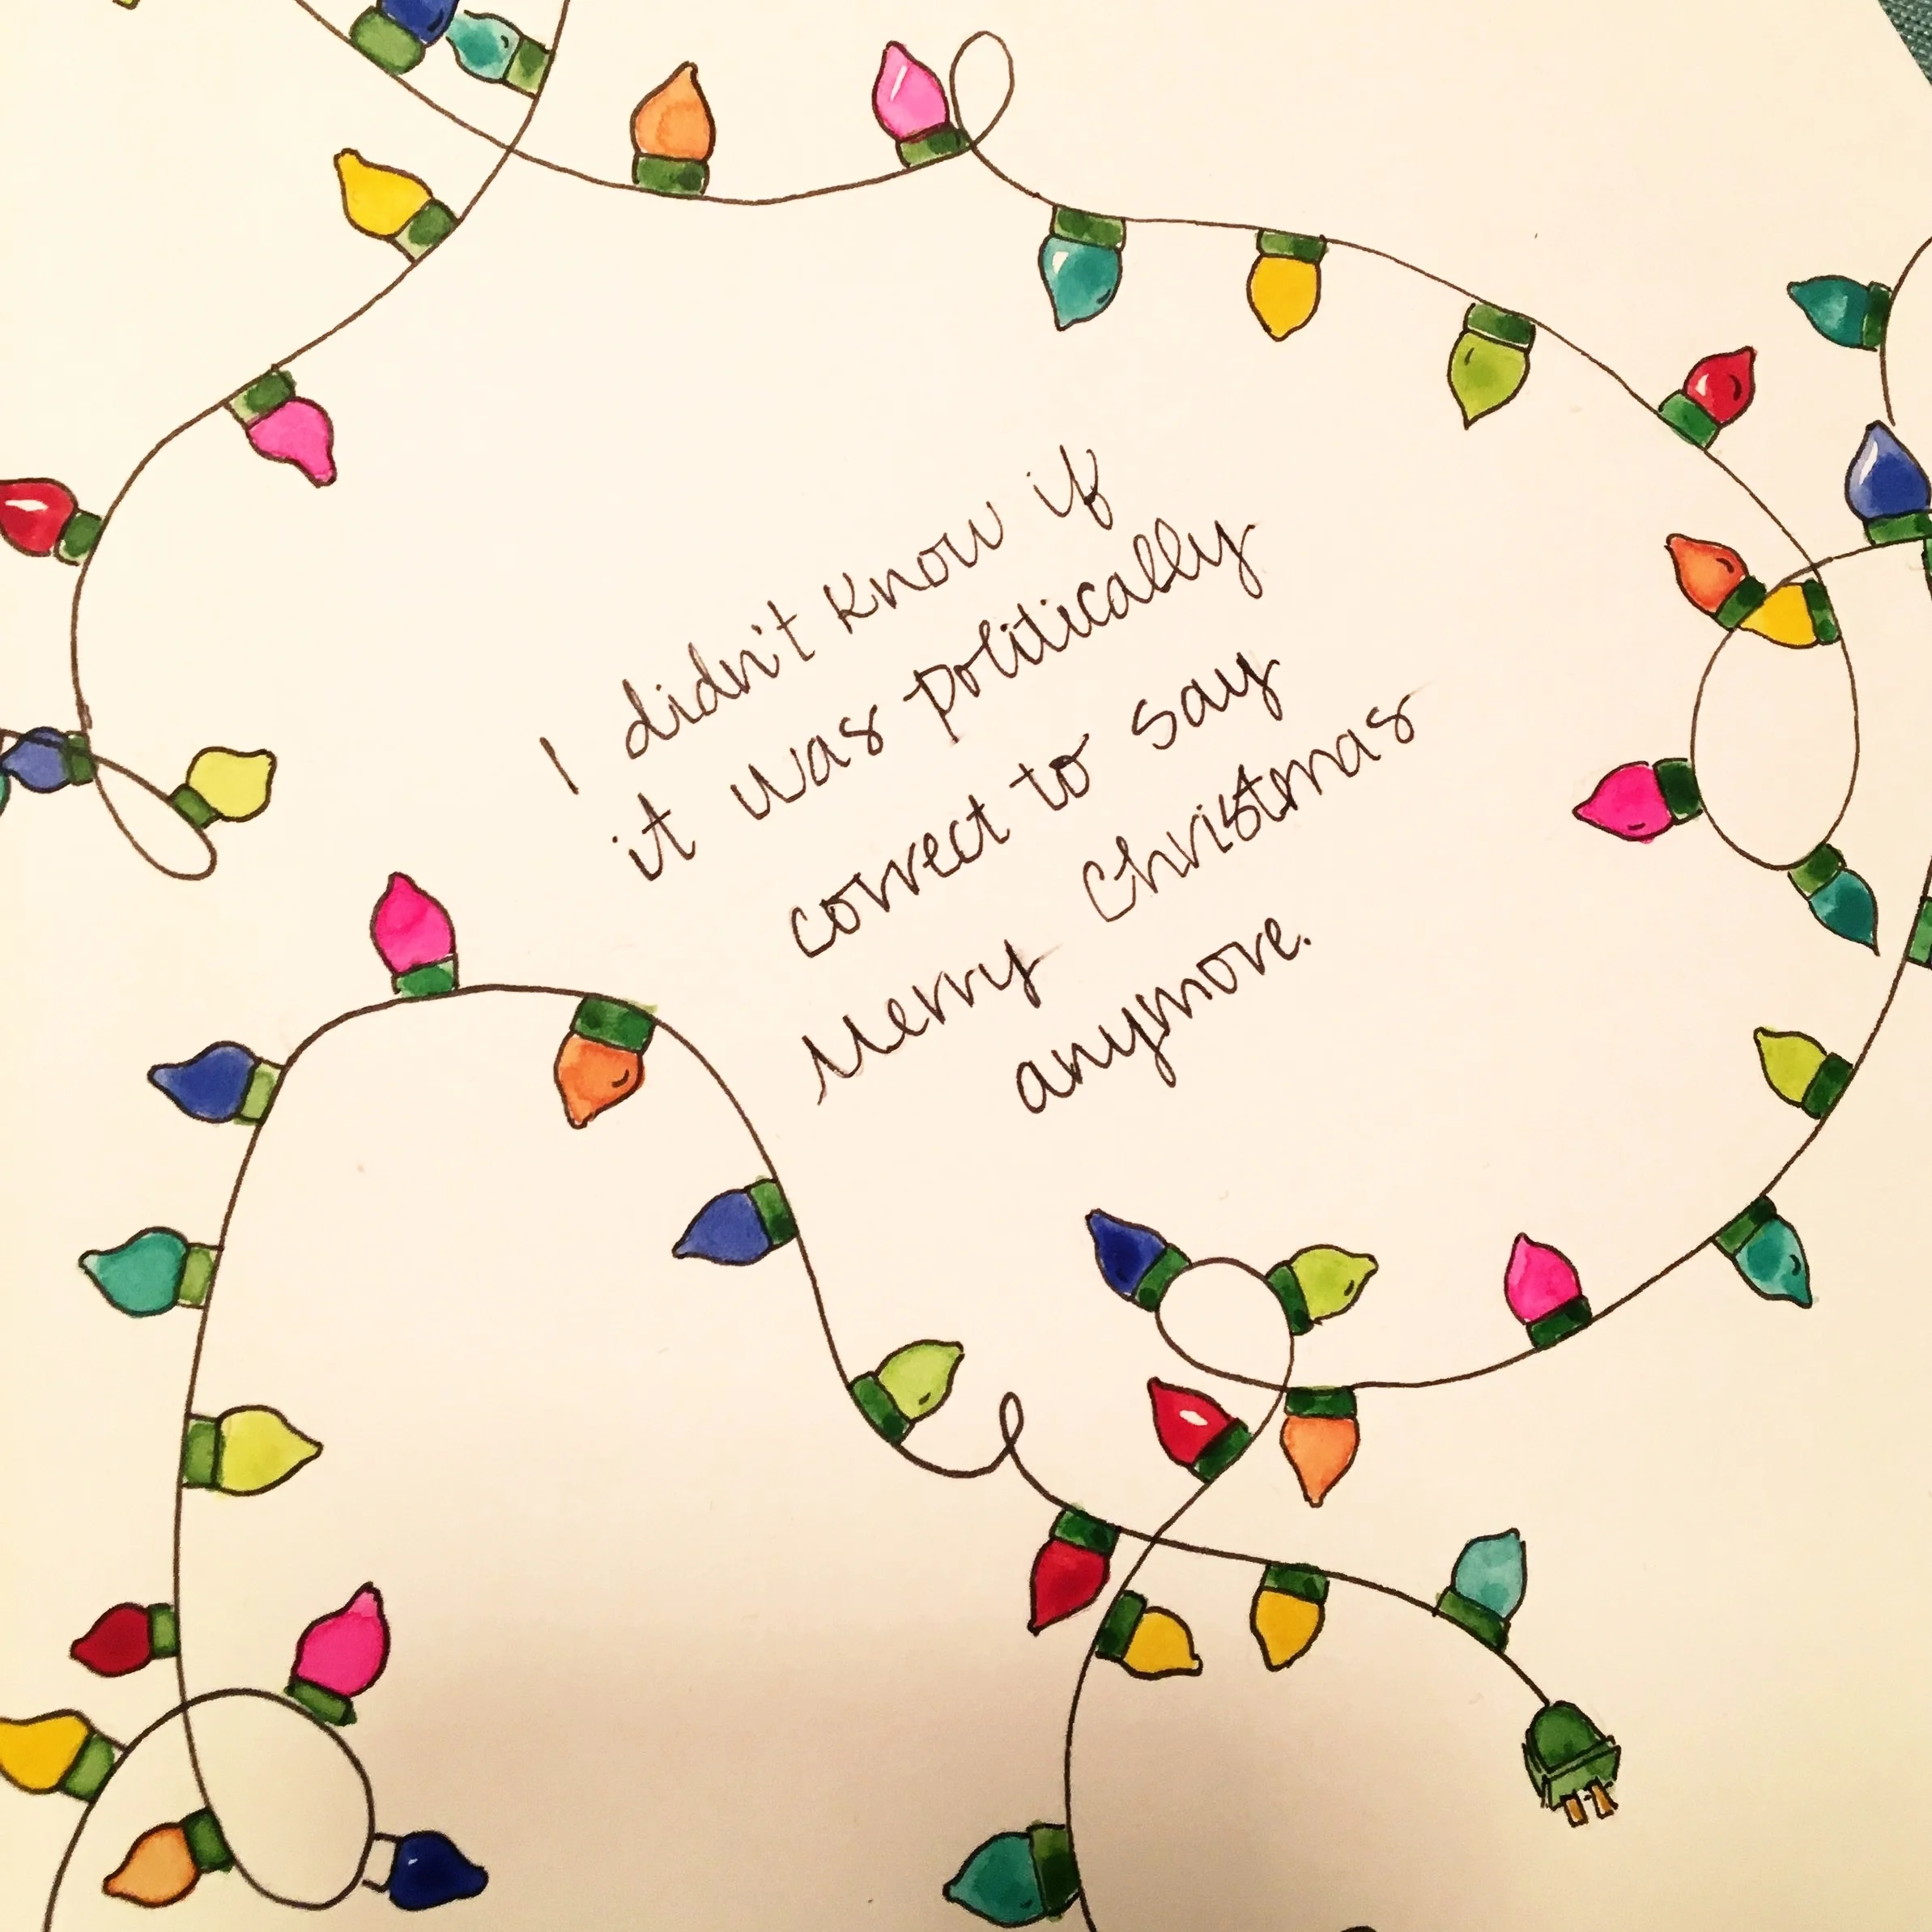 I didn't know if
it was politically
correct to say
Merry Christmas
anymore.